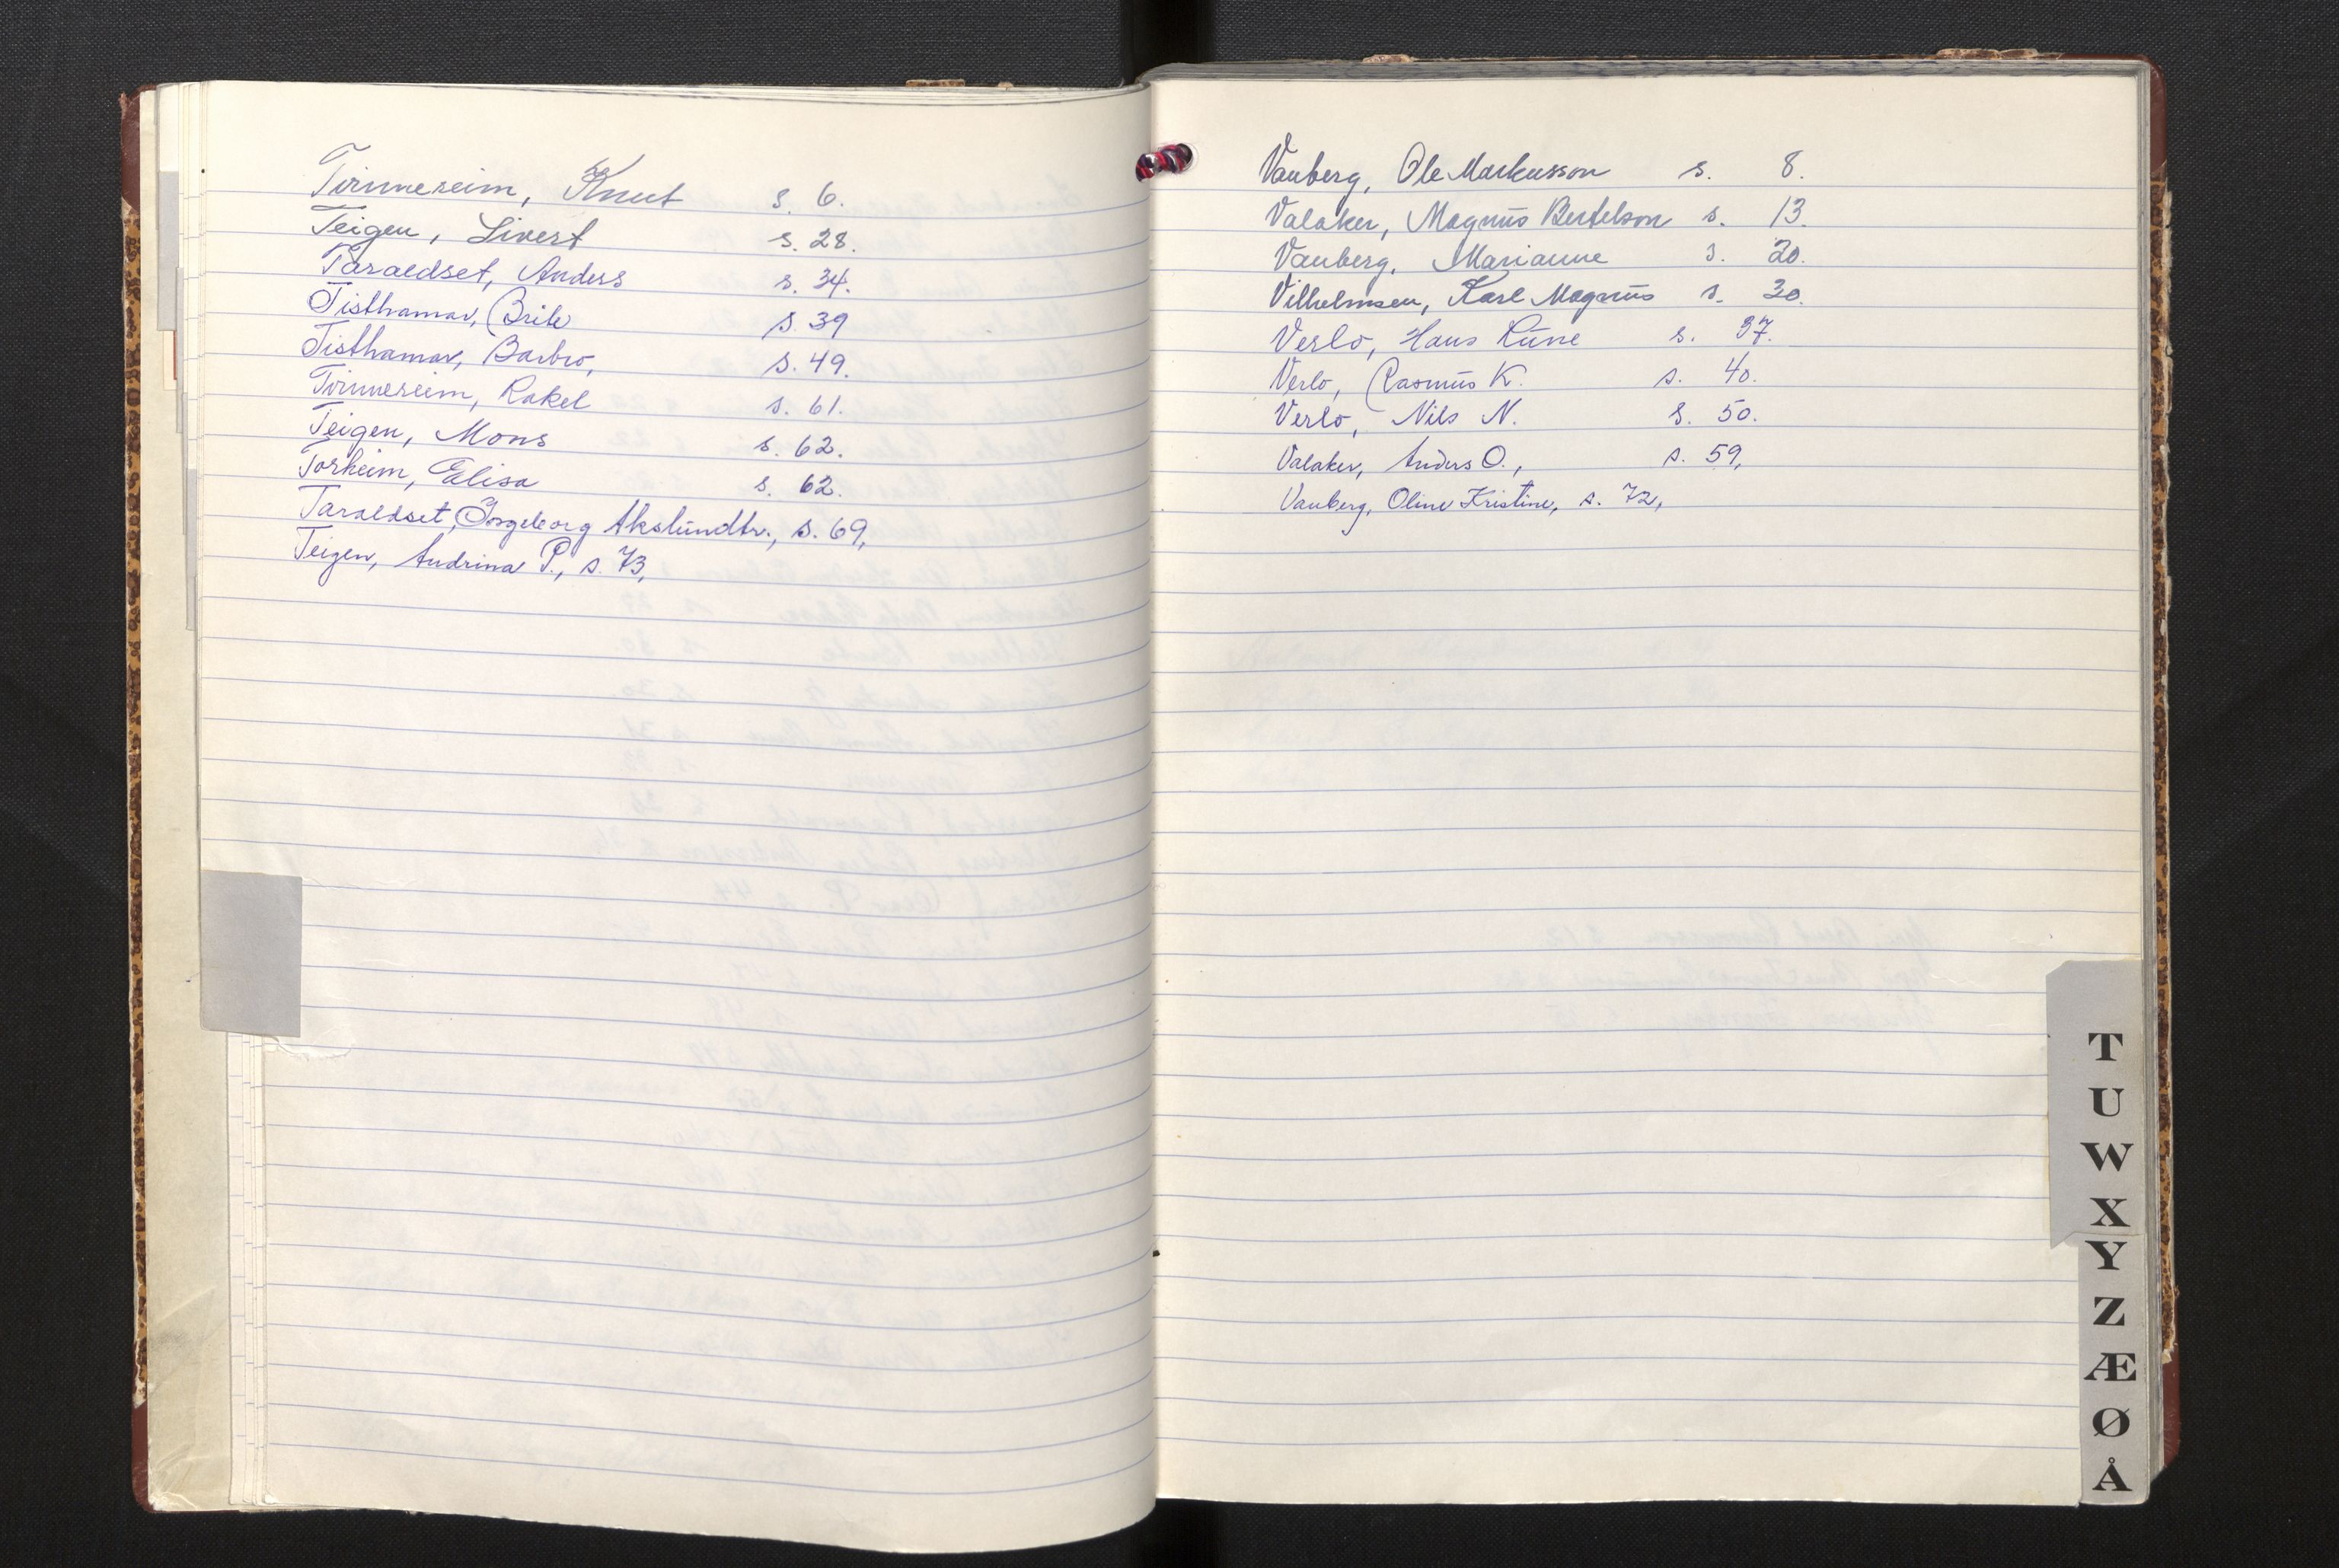 Tvinnereim, Knut s. 6.
Teigen, Sivert s. 28.
Taraldset, Anders s. 34.
Tisthamar, Brite s. 39
Tisthamar, Barbro, s. 49.
Tvinnereim, Rakel s. 61.
Teigen, Mons s. 62.
Torheim, Elisa s. 62.
Taraldset, Ingeborg Akslundtr., s. 69,
Teigen, Andrina P., s. 73,
Vanberg, Ole Markusson s. 8.
Valaker, Magnus Bertelson s. 13.
Vanberg, Marianne s. 20.
Vilhelmsen, Karl Magnus s. 30.
Verlo, Hans Rune s. 37.
Verlo, Rasmus K. s. 40.
Verlo, Nils N. s. 50.
Valaker, Anders O., s. 59,
Vanberg, Oline Kristine, s. 72,
T
U
W
X
Y
Z
Æ
Ø
Å